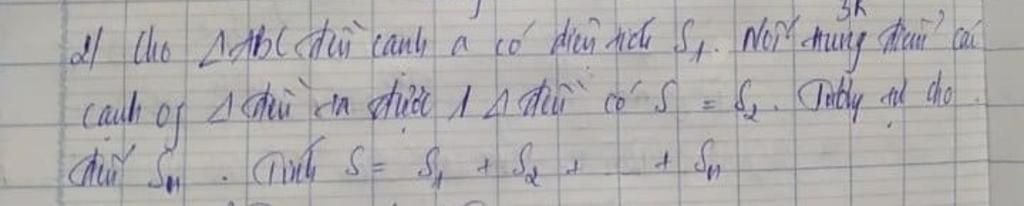 2/ Cho ΔABC đều cạnh a có diện tích S₁. Nối trung điểm các
cạnh of Δ đều ta được 1 Δ đều có S = S₂. Tương tự cho
đến Sₙ. Tính S = S₁ + S₂ + ... + Sₙ